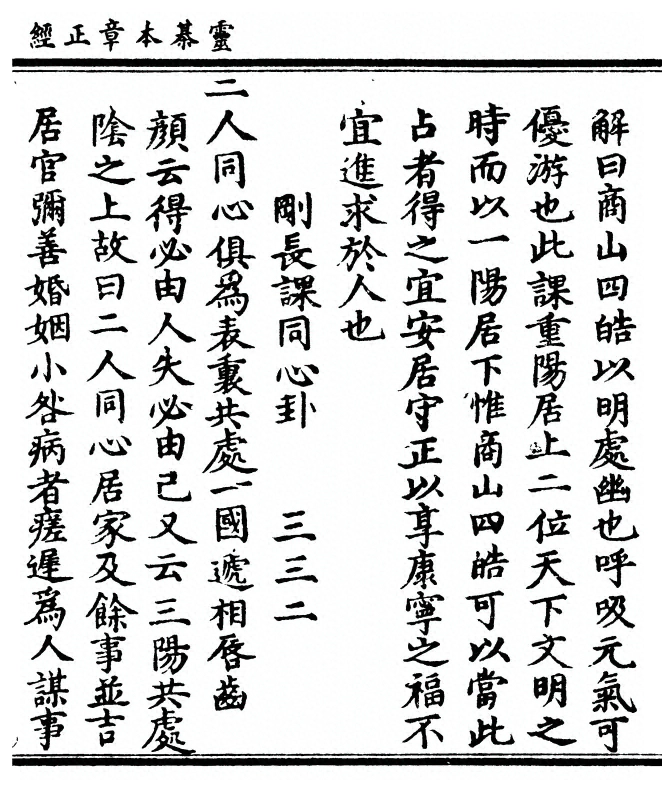 靈棊本章正經
解曰商山四皓以明處幽也呼吸元氣可
優游也此課重陽居上二位天下文明之
時而以一陽居下惟商山四皓可以當此
占者得之宜安居守正以享康寧之福不
宜進求於人也
剛長課同心卦 三三二
二人同心俱爲表裏共處一國遞相唇齒
顔云得必由人失必由己又云三陽共處
陰之上故曰二人同心居家及餘事並吉
居官彌善婚姻小咎病者瘥遲爲人謀事